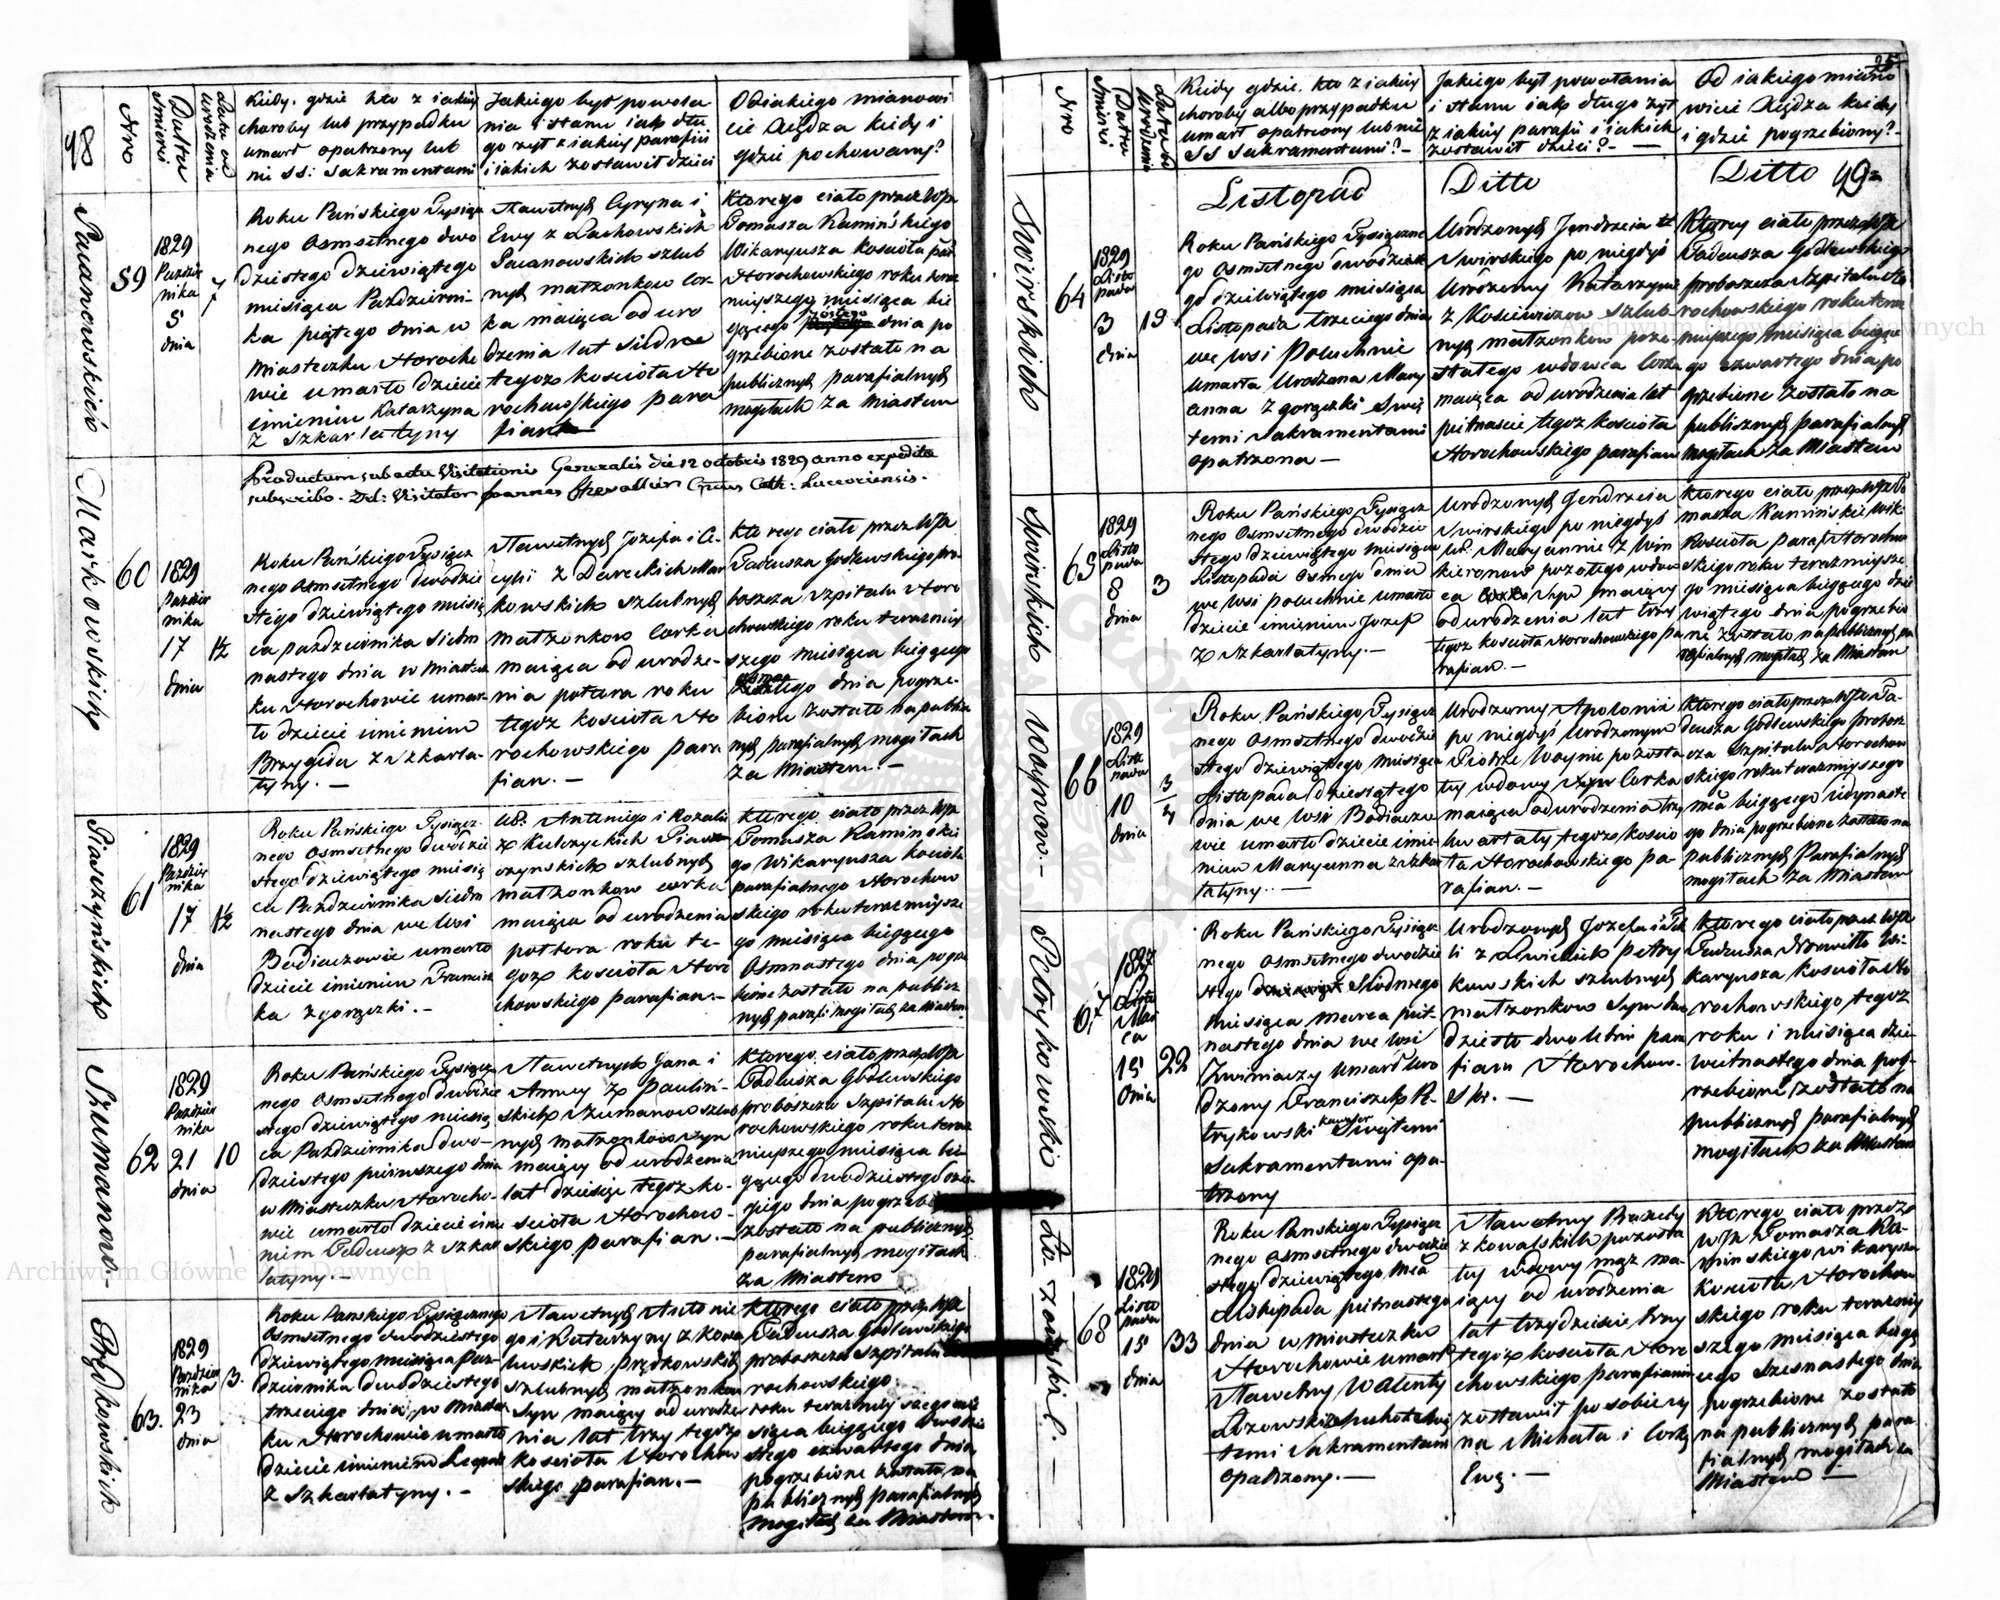 48
Nro
Datta Śmierci
Kiedy. gdzie kto z iakiey
choroby lub przypadku
umarł opatrzony lub
nie SS: Sakramentami
Jakiego był powoła
nia i stanu iak dłu
go żył z iakiey parafii
i iakich zostawił dzieci
Od iakiego mianowi
cie Xiędza kiedy i
gdzie pochowany?
59
1829
Paździer
nika
5
dnia
7
Roku Pańskiego Tysiącz
nego Osmsetnego dwu
dziestego dziewiątego
miesiąca Październi
ka piątego dnia w
Miasteczku Horocho
wie umarło dziecie
imieniem Katarzyna
z Szkarlatyny
Sławetnych Cypryna i
Ewy z Lachowskich
szlub
nych małżonkow Cor
ka maiąca od uro
dzenia lat siedm
tegoż kościoła Ho
rochowskiego para
fianka
Ktorego ciało przez WJX
Tomasza Kamińskiego
Wikaryusza kościoła par
Horochowskiego roku teraz
nieyszego miesiąca bie
żącego szostego dnia po
grzebione zostało na
publicznych parafialnych
mogiłach za Miastem
Productum sub actu Visitationis Generalis die 12 octobris 1829 anno expedita
subscribo. Del: Visitator Joannes Canus Cath: Luceoriensis.
Markowskich
60
1829
Paździer
nika
17
dnia
1½
Roku Pańskiego Tysiącz
nego Osmsetnego dwudzie
stego dziewiątego miesią
ca października siedm
nastego dnia w Miastecz
ku Horochowie umar
ło dziecie imieniem
Brygida z Szkarla
tyny. —
Sławetnych Jozefa i Ce
cylii z Dareckich Mar
kowskich szlubnych
małżonkow Corka
maiąca od urodze
nia pułtora roku
tegoż kościoła Ho
rochowskiego para
fian. —
Ktorego ciało przez WJX
Tadeusza Godlewskiego pro
boszcza Szpitalu Horo
chowskiego roku teraźniey
szego miesiąca bieżącego
dnia pogrze
bione zostało na publicz
nych parafialnych mogiłach
za Miastem. —
Piaszczyńskich
61
1829
Paździer
nika
17
dnia
1½
Roku Pańskiego Tysiącz
nego Osmsetnego dwudzie
stego dziewiątego miesią
ca Października siedm
nastego dnia we Wsi
umarło
dziecie imieniem Francisz
ka z gorączki. —
Ur: Antoniego i Rozalii
z Kulczyckich Piasz
czynskich szlubnych
małżonkow corka
maiąca od urodzenia
pułtora roku te
goż kościoła Horo
chowskiego parafian. —
Ktorego ciało przez WJX
Tomasza Kamińskie
go Wikaryusza kościoła
parafialnego Horochow
skiego roku teraznieysze
go miesiąca bieżącego
Osmnastego dnia pogrze
bione zostało na publicz
nych parafi mogiłach za Miastem
Szumanow. —
62
1829
Paździer
nika
21
dnia
10
Roku Pańskiego Tysiącz
nego Osmsetnego dwudzie
stego dziewiątego miesią
ca Października dwu
dziestego pierwszego dnia
w Miasteczku Horocho
wie umarło dziecie imie
niem Tadeusz z Szkar
latyny. —
Sławetnych Jana i
Anny z Pauliń
skich Szumanow szlub
nych małżonkow syn
maiący od urodzenia
lat dziesięć tegoż ko
ścioła Horochow
skiego parafian. —
Ktorego ciało przez WJX
Tadeusza Godlewskiego
proboszcza Szpitalu Ho
rochowskiego roku teraz
nieyszego miesiąca bie
żącego dwudziestego
dnia pogrzebione
zostało na publicznych
parafialnych mogiłach
za Miastem
63.
1829
Paździer
nika
23
dnia
3.
Roku Pańskiego Tysiącznego
Osmsetnego dwudziestego
dziewiątego miesiąca Paz
dziernika dwudziestego
trzeciego dnia w Miastecz
ku Horochowie umarło
dziecie imieniem Leopold
z Szkarlatyny. —
Sławetnych Antonie
go i Katarzyny z Kowa
lewskich
szlubnych małżonkow
Syn maiący od urodze
nia lat trzy tegoż
kościoła Horochow
skiego parafian. —
Ktorego ciało przez WJX
Tadeusza Godlewskiego
proboszcza Szpitalu Ho
rochowskiego
roku teraznieyszego mie
siąca bieżącego dwudzie
stego czwartego dnia
pogrzebione zostało na
publicznych parafialnych
mogiłach za Miastem.
25
Nro
Datta Śmierci
Kiedy gdzie. kto z iakiey
choroby albo przypadku
umarł opatrzony lub nie
SS Sakramentami? —
Jakiego był powołania
i stanu iak długo żył
z iakiey parafii i iakich
zostawił dzieci? —
Od iakiego miano
wicie Xiędza kiedy
i gdzie pogrzebiony? —
Listopad
Ditto
Ditto 49
Swirskich
64
1829
Listo
pada
3
dnia
15
Roku Pańskiego Tysiączne
go Osmsetnego dwudzieste
go dziewiątego miesiąca
Listopada trzeciego dnia
we wsi Poluchnie
umarła Urodzona Mary
anna z gorączki Swię
temi Sakramentami
opatrzona —
Urodzonych Jendrzeia
Swirskiego po niegdyś
Urodzoney Katarzynie
z szlub
ney małżonkow pozo
stałego wdowca Corka
maiąca od urodzenia lat
pietnascie tegoż kościoła
Horochowskiego parafian
Ktorey ciało przez WJX
Tadeusza Godlewskiego
proboszcza Szpitalu Ho
rochowskiego roku teraz
nieyszego miesiąca bieżące
go czwartego dnia po
grzebione zostało na
publicznych parafialnych
mogiłach za Miastem
Swirskich
65
1829
Listo
pada
8
dnia
3
Roku Pańskiego Tysiącz
nego Osmsetnego dwudzie
stego dziewiątego miesiąca
Listopada osmego dnia
we wsi Poluchnie umarło
dziecie imieniem Jozef
z Szkarlatyny. —
Urodzonych Jendrzeia
Swirskiego po niegdyś
Ur. Maryannie z Win
kieronow pozostałego wdow
ca Syn maiący
od urodzenia lat trzy
tegoż kościoła Horochowskiego pa
rafian. —
Ktorego ciało przez WJX To
masza Kamińskie Wik
Kościoła parafi Horochow
skiego roku teraznieysze
go miesiąca bieżącego dzie
wiątego dnia pogrzebio
ne zostało na publicznych pa
rafialnych mogiłach za Miastem
Woynow. —
66
1829
Listo
pada
10
dnia
3/4
Roku Pańskiego Tysiącz
nego Osmsetnego dwudzie
stego dziewiątego miesiąca
Listopada dziesiątego
dnia we Wsi
umarło dziecie imie
niem Maryanna z Szkar
latyny. —
Urodzoney Apolonii
po niegdyś Urodzonym
Piotrze Woynie pozosta
łey wdowy Corka
maiąca od urodzenia trzy
kwartały tegoż kościo
ła Horochowskiego pa
rafian. —
Ktorego ciało przez WJX Ta
deusza Godlewskiego probosz
cza Szpitalu Horochow
skiego roku teraznieyszego
mca bieżącego iedynaste
go dnia pogrzebione zostało na
publicznych Parafialnych
mogiłach za Miastem
Petrykowskich
67
1827
Mar
ca
15
dnia
22
Roku Pańskiego Tysiącz
nego Osmsetnego dwudzie
stego Siodmego
miesiąca marca piet
nastego dnia we wsi
Zwiniaczy umarł Uro
dzony Franciszek Pe
trykowski kawaler Swiętemi
Sakramentami opa
trzony
Urodzonych Jozefa i Tek
li z Petry
kowskich szlubnych
małżonkow Syn dwu
dziesto dwu letni para
fian Horochow
ski. —
Ktorego ciało przez WJX
Tadeusza Wi
karyusza kościoła Ho
rochowskiego tegoż
roku i miesiąca dzie
wietnastego dnia pog
rzebione zostało na
publicznych parafialnych
mogiłach za Miastem
68
1829
Listo
pada
15
dnia
33
Roku Pańskiego Tysiącz
nego Osmsetnego dwudzie
stego dziewiątego Mca
Listopada pietnastego
dnia w Miasteczku
Horochowie umarł
Sławetny Walenty
temi Sakramentami
opatrzony. —
Sławetney
z Kowalskich pozosta
łey wdowy mąż ma
iący od urodzenia
lat trzydziescie trzy
tegoż kościoła Horo
chowskiego parafianin
zostawił po sobie sy
na Michała i Corkę
Ewę. —
Ktorego ciało przez
WJX Tomasza Ka
minskiego wikaryusza
Kościoła Horochow
skiego roku teraźniey
szego miesiąca bieżą
cego Szesnastego dnia
pogrzebione zostało
na publicznych para
fialnych mogiłach za
Miastem —
Archiwum Główne Akt Dawnych
Archiwum Główne Akt Dawnych